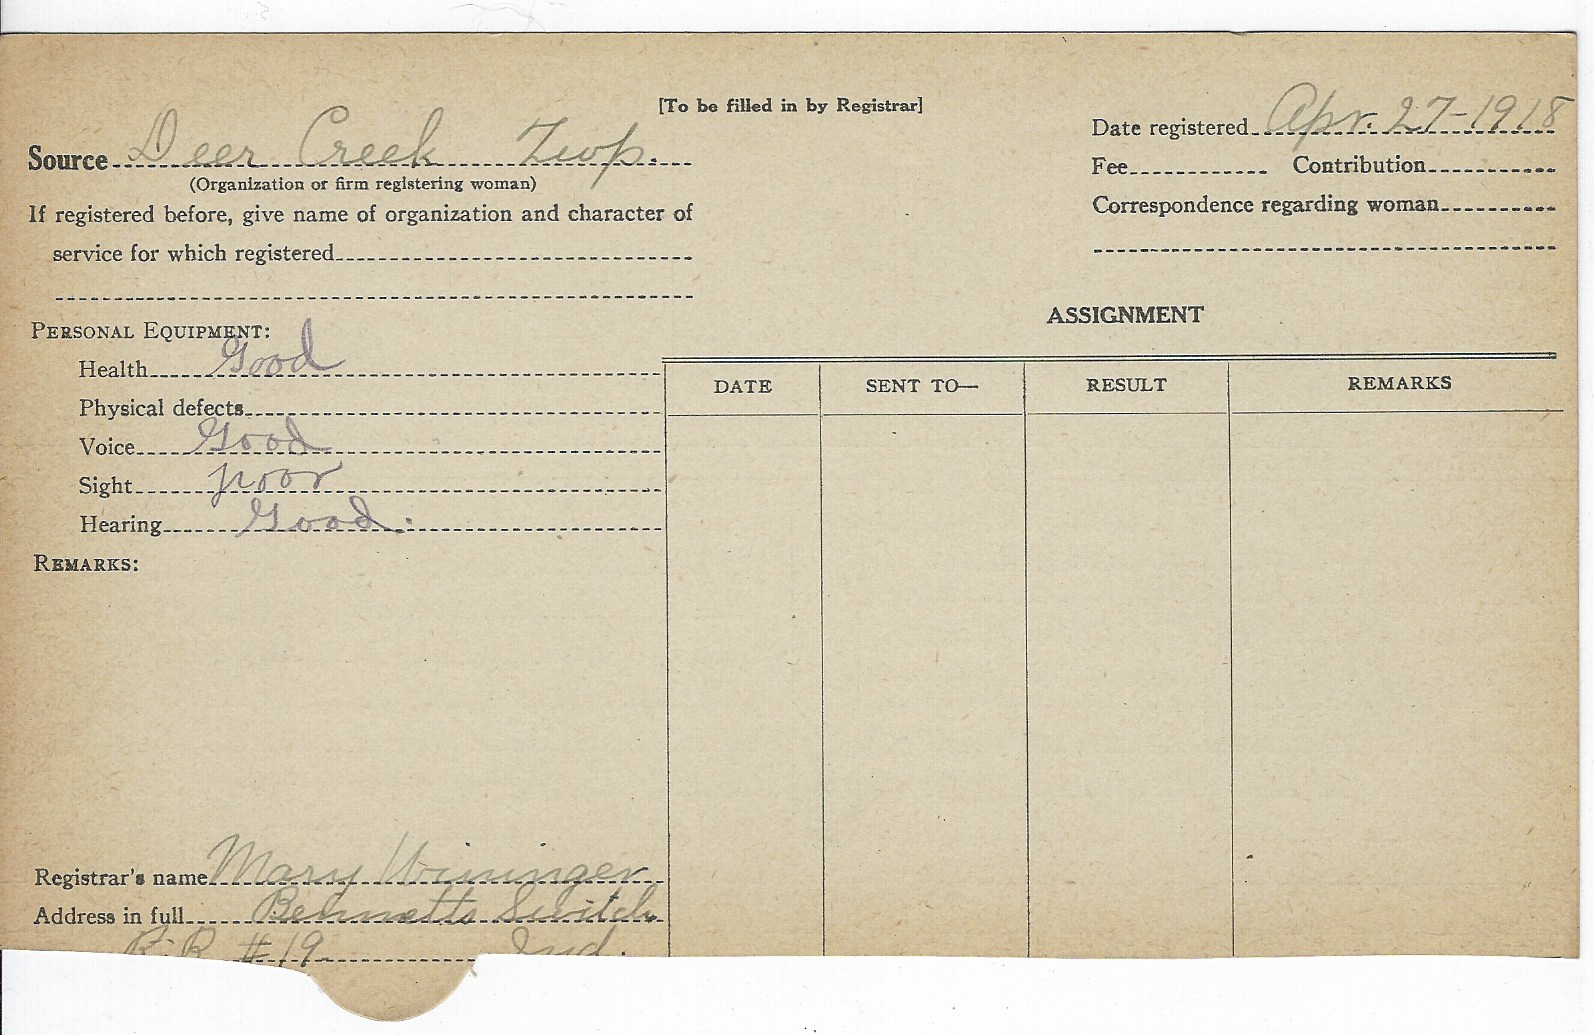 [To be filled in by Registrar]
Source Deer Creek Twp.
(Organization or firm registering woman)
If registered before, give name of organization and character of
service for which registered
Date registered Apr. 27-1918
Fee Contribution
Correspondence regarding woman
PERSONAL EQUIPMENT:
Health Good
Physical defects
Voice Good
Sight poor
Hearing Good.
REMARKS:
ASSIGNMENT
DATE SENT TO— RESULT REMARKS
Registrar's name Mary Wininger
Address in full Bennetts Switch
R.R. #19 Ind.